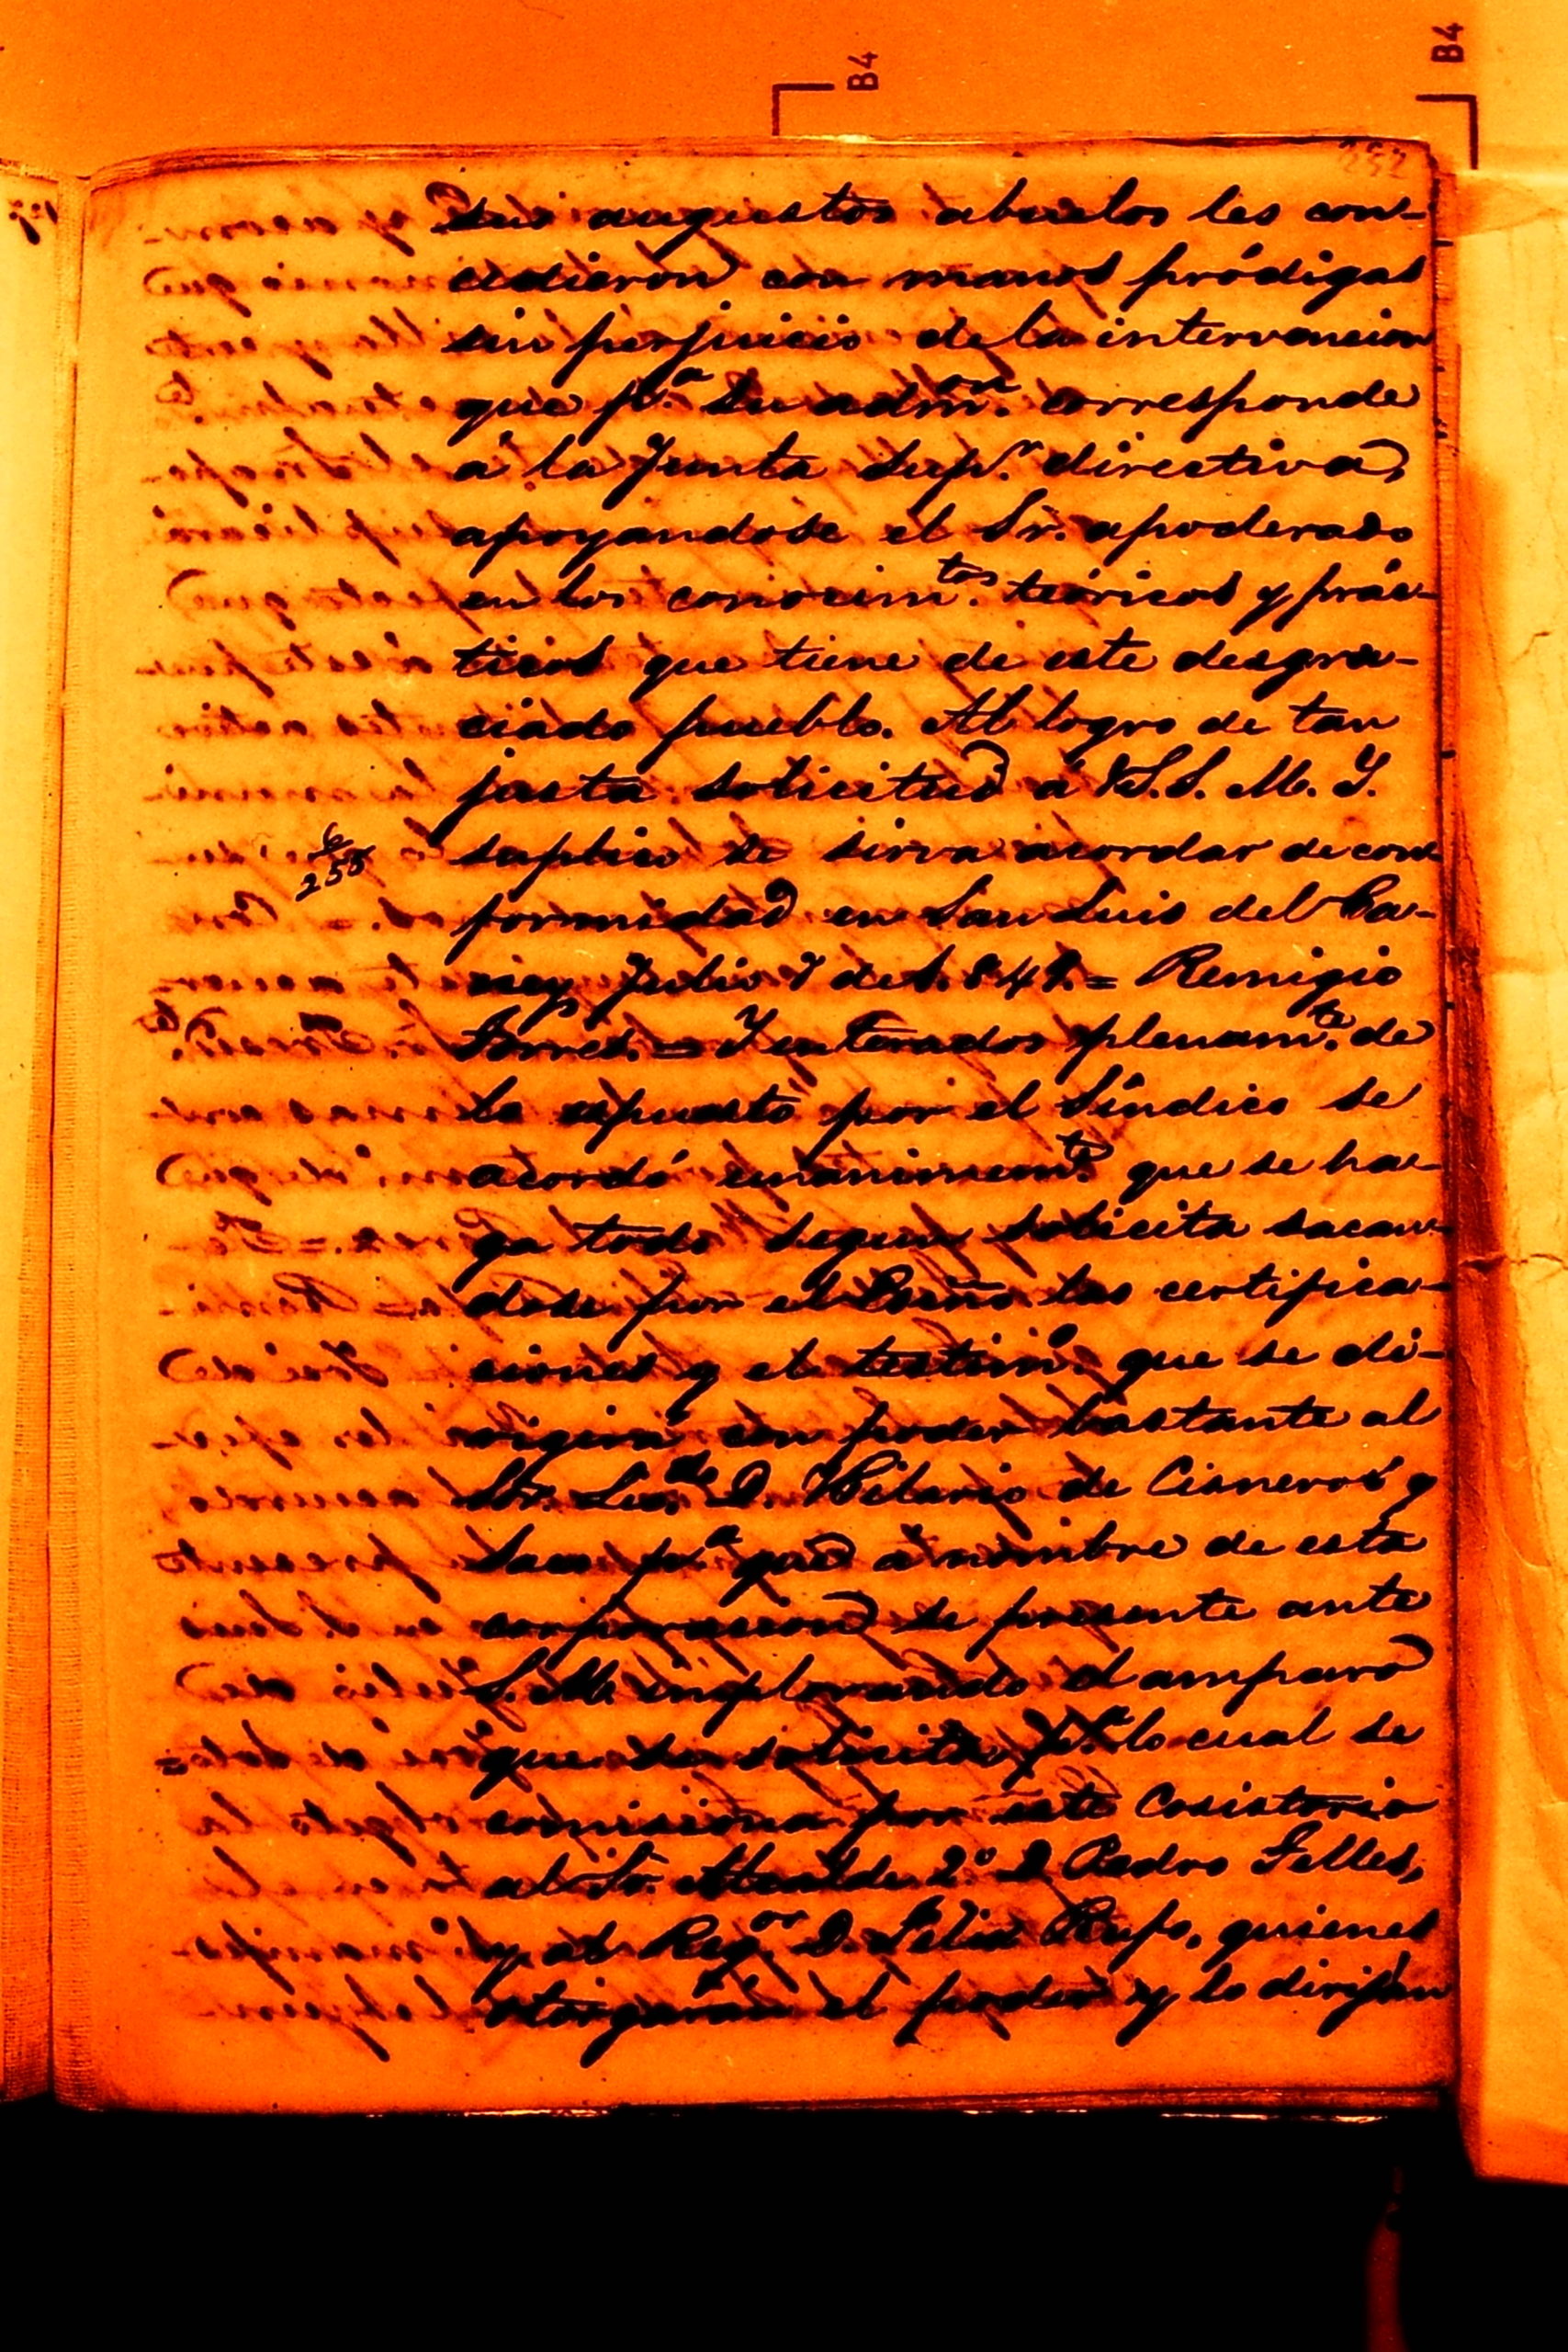 B4
B4
252
sus augustos abuelos les con-
cedieron con manos pródigas
sin perjuicio de la intervencion
que p.ª su adm.on corresponde
á la Junta Sup.r directiva,
apoyandose el Sr. apoderado
en los conocim.tos teóricos y prác-
ticos que tiene de este desgra-
ciado pueblo. Al logro de tan
justa solicitud á V.S.S. M. Y.
suplico se sirva acordar de con-
formidad en San Luis del Ca-
ney Julio 7 de 1.847.= Remigio
Torres.= Y enterados plenam.te de
lo espuesto por el Síndico se
acordó unánimem.te que se ha-
ga todo segun solicita sacan-
dose por el Escño. las certifica-
ciones y el testim.o que se di-
rigirá con poder bastante al
Sor. Lic.do D. Hilario de Cisneros y
Saco p.ª que á nombre de esta
corporacion se presente ante
S. M. implorando el amparo
que se solicita p.ª lo cual se
comisiona por este Cosistorio
al Sr. Alcalde 2.º D. Pedro Telles,
y al Reg.or D. Felix Rufo, quienes
otorgarán el poder y lo dirijan
6
255